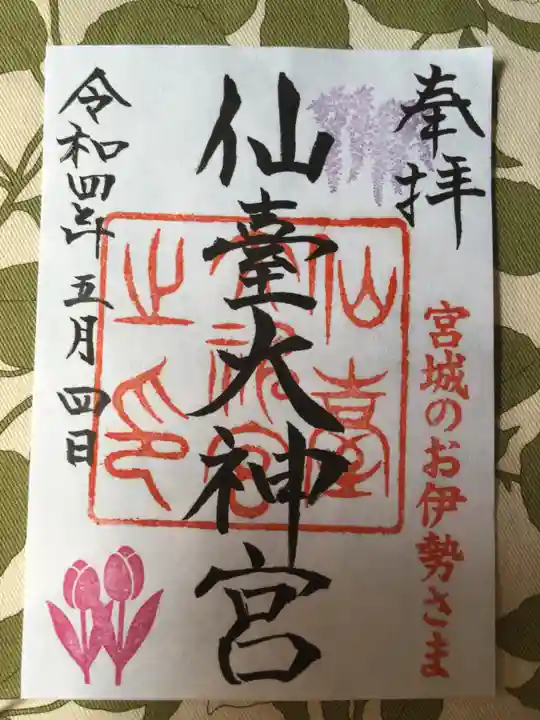 奉拝
宮城のお伊勢さま
仙臺大神宮
仙臺
大神宮
之印
令和四年五月四日